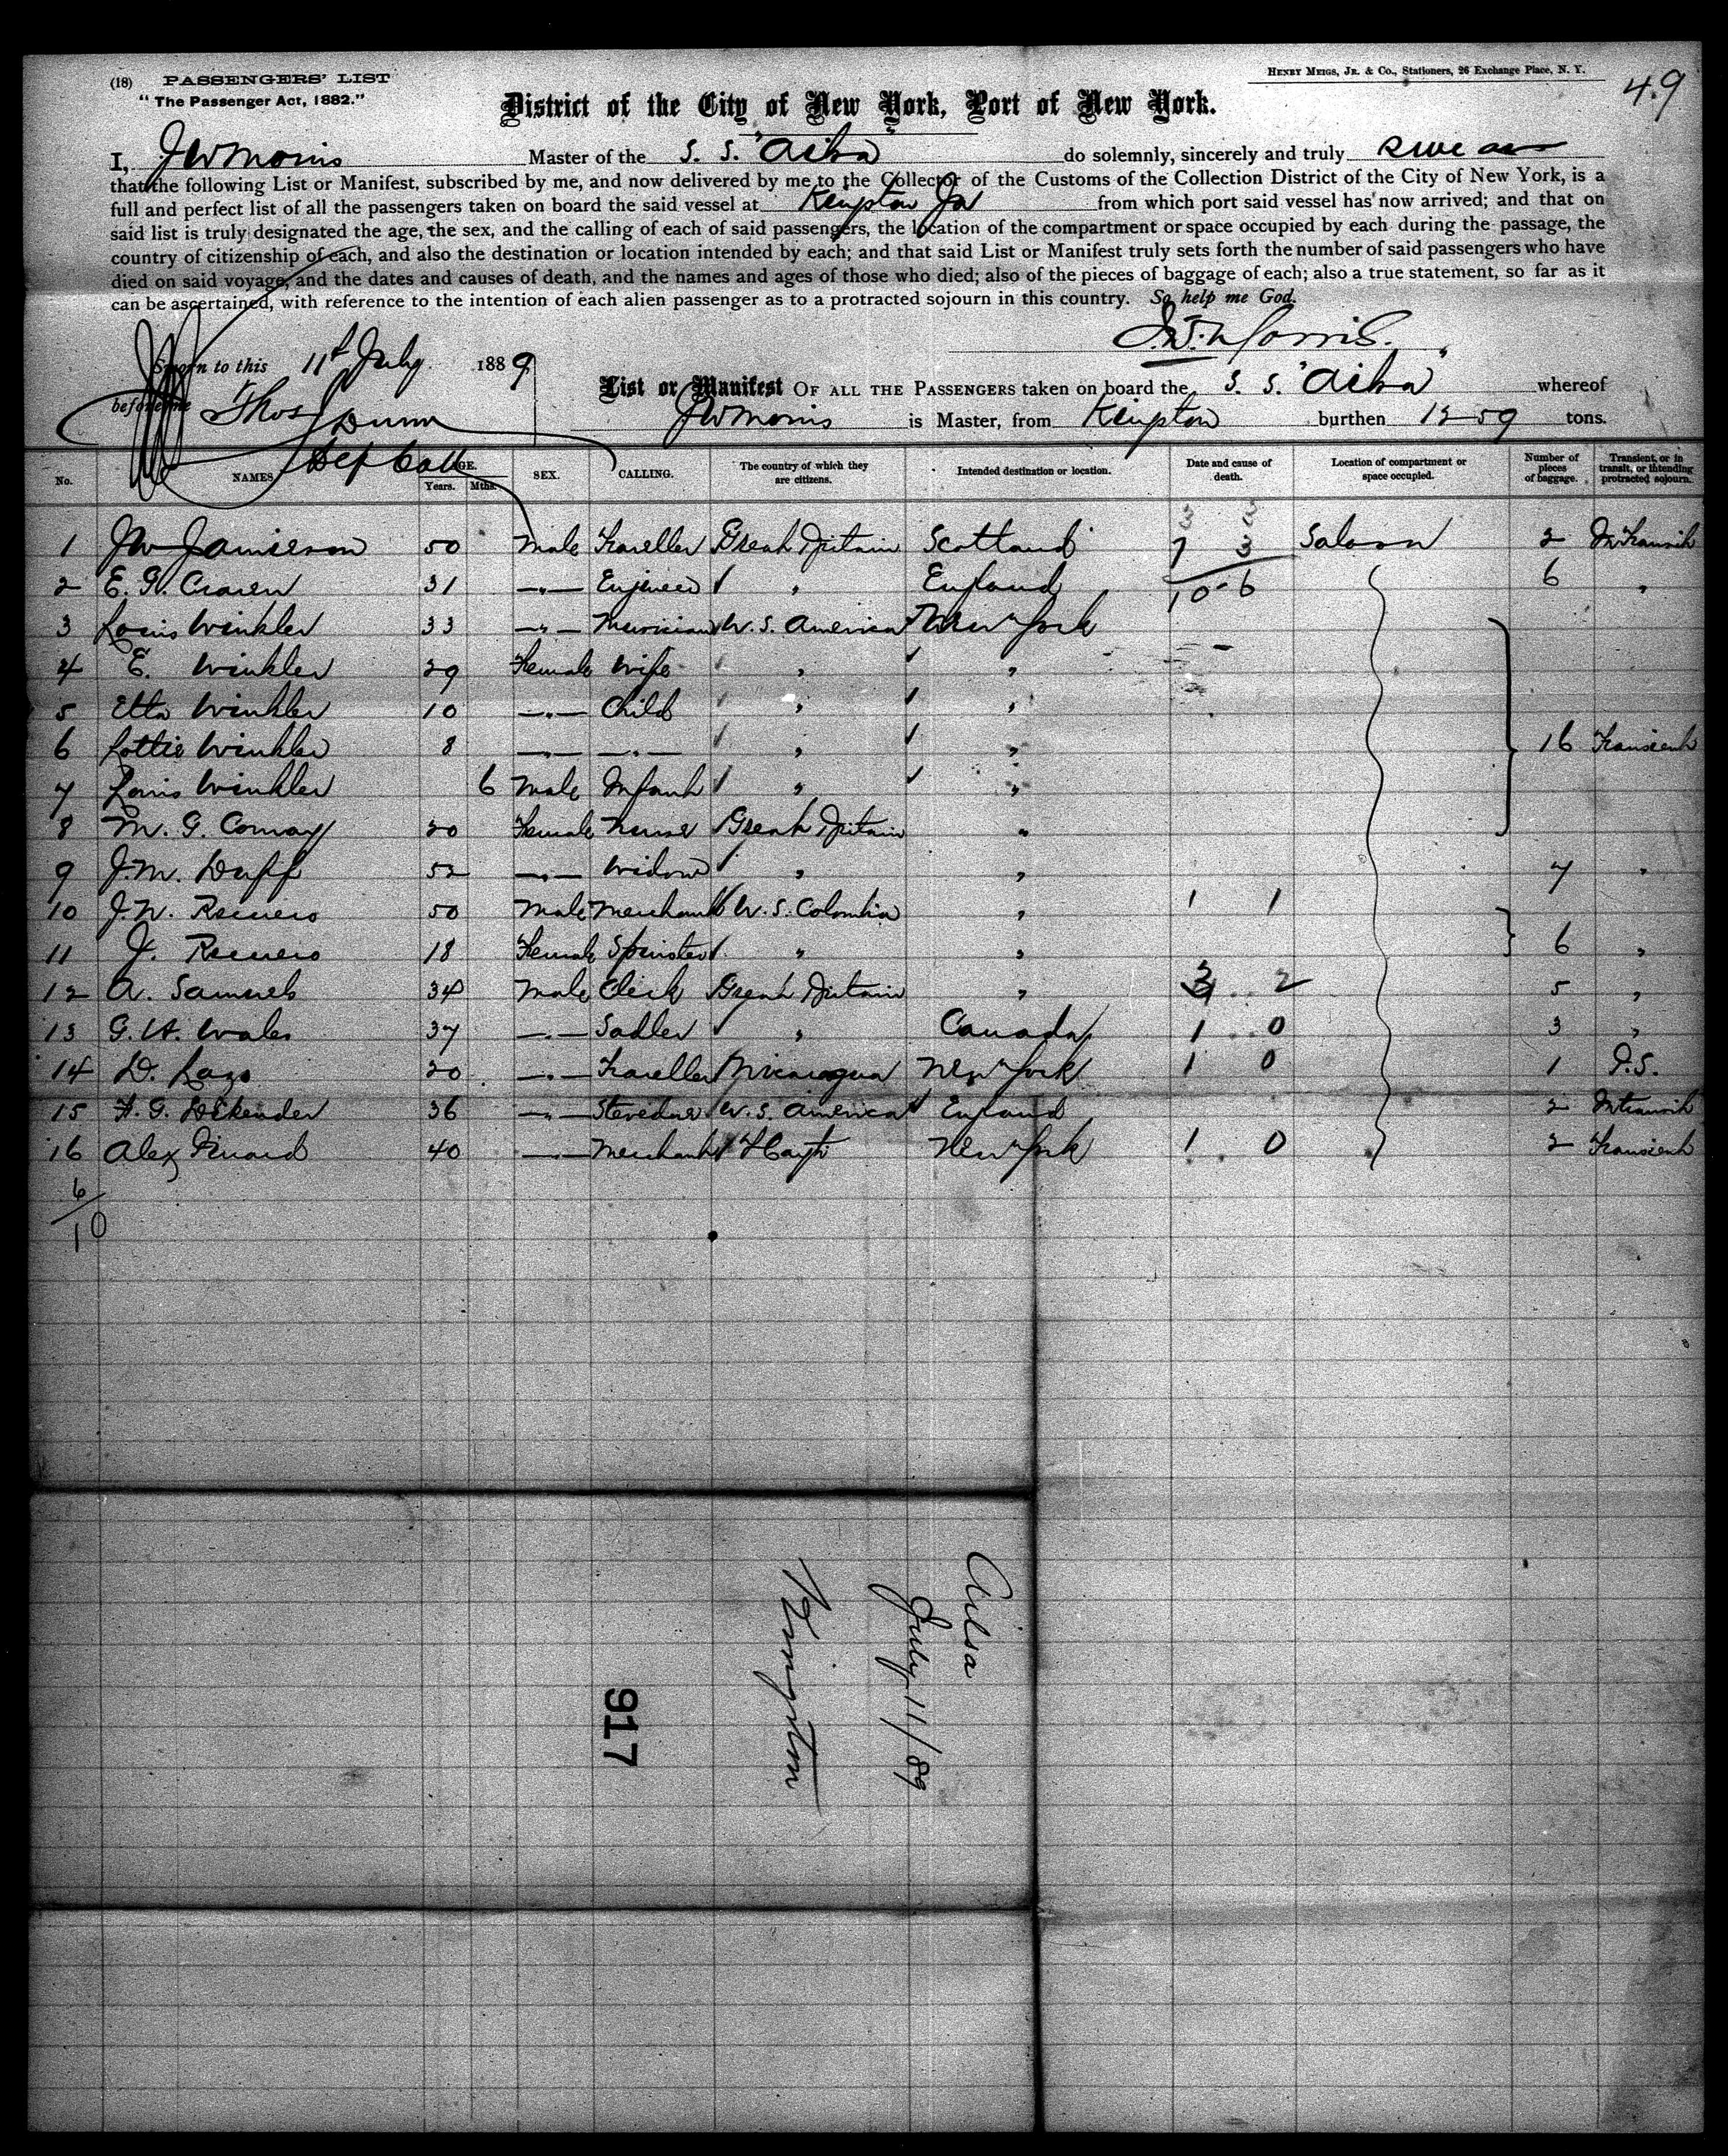 (18) PASSENGERS' LIST
HENRY MEIGS, JR. & CO., Stationers, 26 Exchange Place, N. Y.
49
"The Passenger Act, 1882."
District of the City of New York, Port of New York.
I, JW Morris Master of the S. S. "Ailsa" do solemnly, sincerely and truly swear
that the following List or Manifest, subscribed by me, and now delivered by me to the Collector of the Customs of the Collection District of the City of New York, is a
full and perfect list of all the passengers taken on board the said vessel at Kingston Ja from which port said vessel has now arrived; and that on
said list is truly designated the age, the sex, and the calling of each of said passengers, the location of the compartment or space occupied by each during the passage, the
country of citizenship of each, and also the destination or location intended by each; and that said List or Manifest truly sets forth the number of said passengers who have
died on said voyage, and the dates and causes of death, and the names and ages of those who died; also of the pieces of baggage of each; also a true statement, so far as it
can be ascertained, with reference to the intention of each alien passenger as to a protracted sojourn in this country. So help me God.
J.W. Morris.
Sworn to this 11th July 1889
before me Thos Dunn
Dep Coll
List or Manifest OF ALL THE PASSENGERS taken on board the S. S. "Ailsa" whereof
JW Morris is Master, from Kingston burthen 1259 tons.
No. NAMES AGE. Years. Mths. SEX. CALLING. The country of which they are citizens. Intended destination or location. Date and cause of death. Location of compartment or space occupied. Number of pieces of baggage. Transient, or in transit, or intending protracted sojourn.
3 3
1 JW Jamieson 50 Male Traveller Great Britain Scotland 7 3 Saloon 2 In Transit
2 E. G. Craven 31 —"— Engineer " England 10-6 6 "
3 Louis Winkler 33 —"— Musician U.S. America New York
4 E. Winkler 29 Female Wife " "
5 Etta Winkler 10 —"— Child " "
6 Lottie Winkler 8 —"— —"— " " 16 Transient
7 Louis Winkler 6 Male Infant " "
8 M. G. Conway 20 Female Nurse Great Britain "
9 J.M. Duff 52 —"— Widow " " 7 "
10 J.N. 50 Male Merchant U.S. Colombia " 1 1
11 J. 18 Female Spinster " " 6 "
12 A. Samuels 34 Male Clerk Great Britain " 3 2 5 "
13 G. H. Wales 37 —"— Sadler " Canada 1 0 3 "
14 D. Lazo 20 —"— Traveller Nicaragua New York 1 0 1 P.S.
15 36 —"— Stevedore U.S. America England 2 In transit
16 Alex 40 —"— Merchant Hayti New York 1 0 2 Transient
6
10
Ailsa
July 11/89
Kingston
917